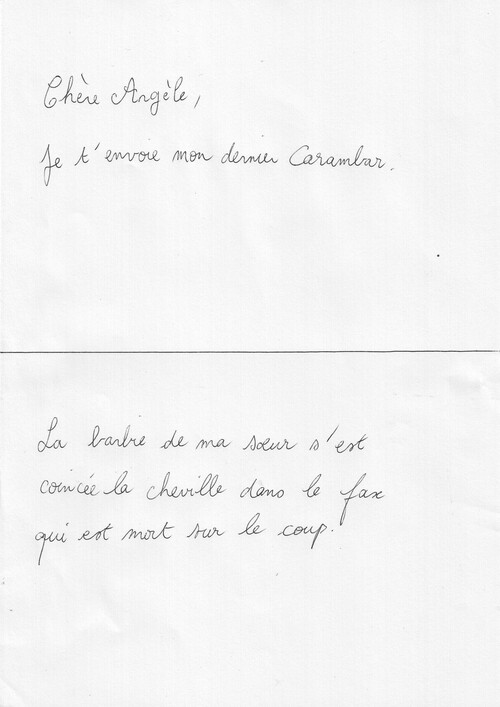 Chère Angèle,
Je t'envoie mon dernier Carambar.
La barbie de ma sœur s'est
coincée la cheville dans le fax
qui est mort sur le coup.